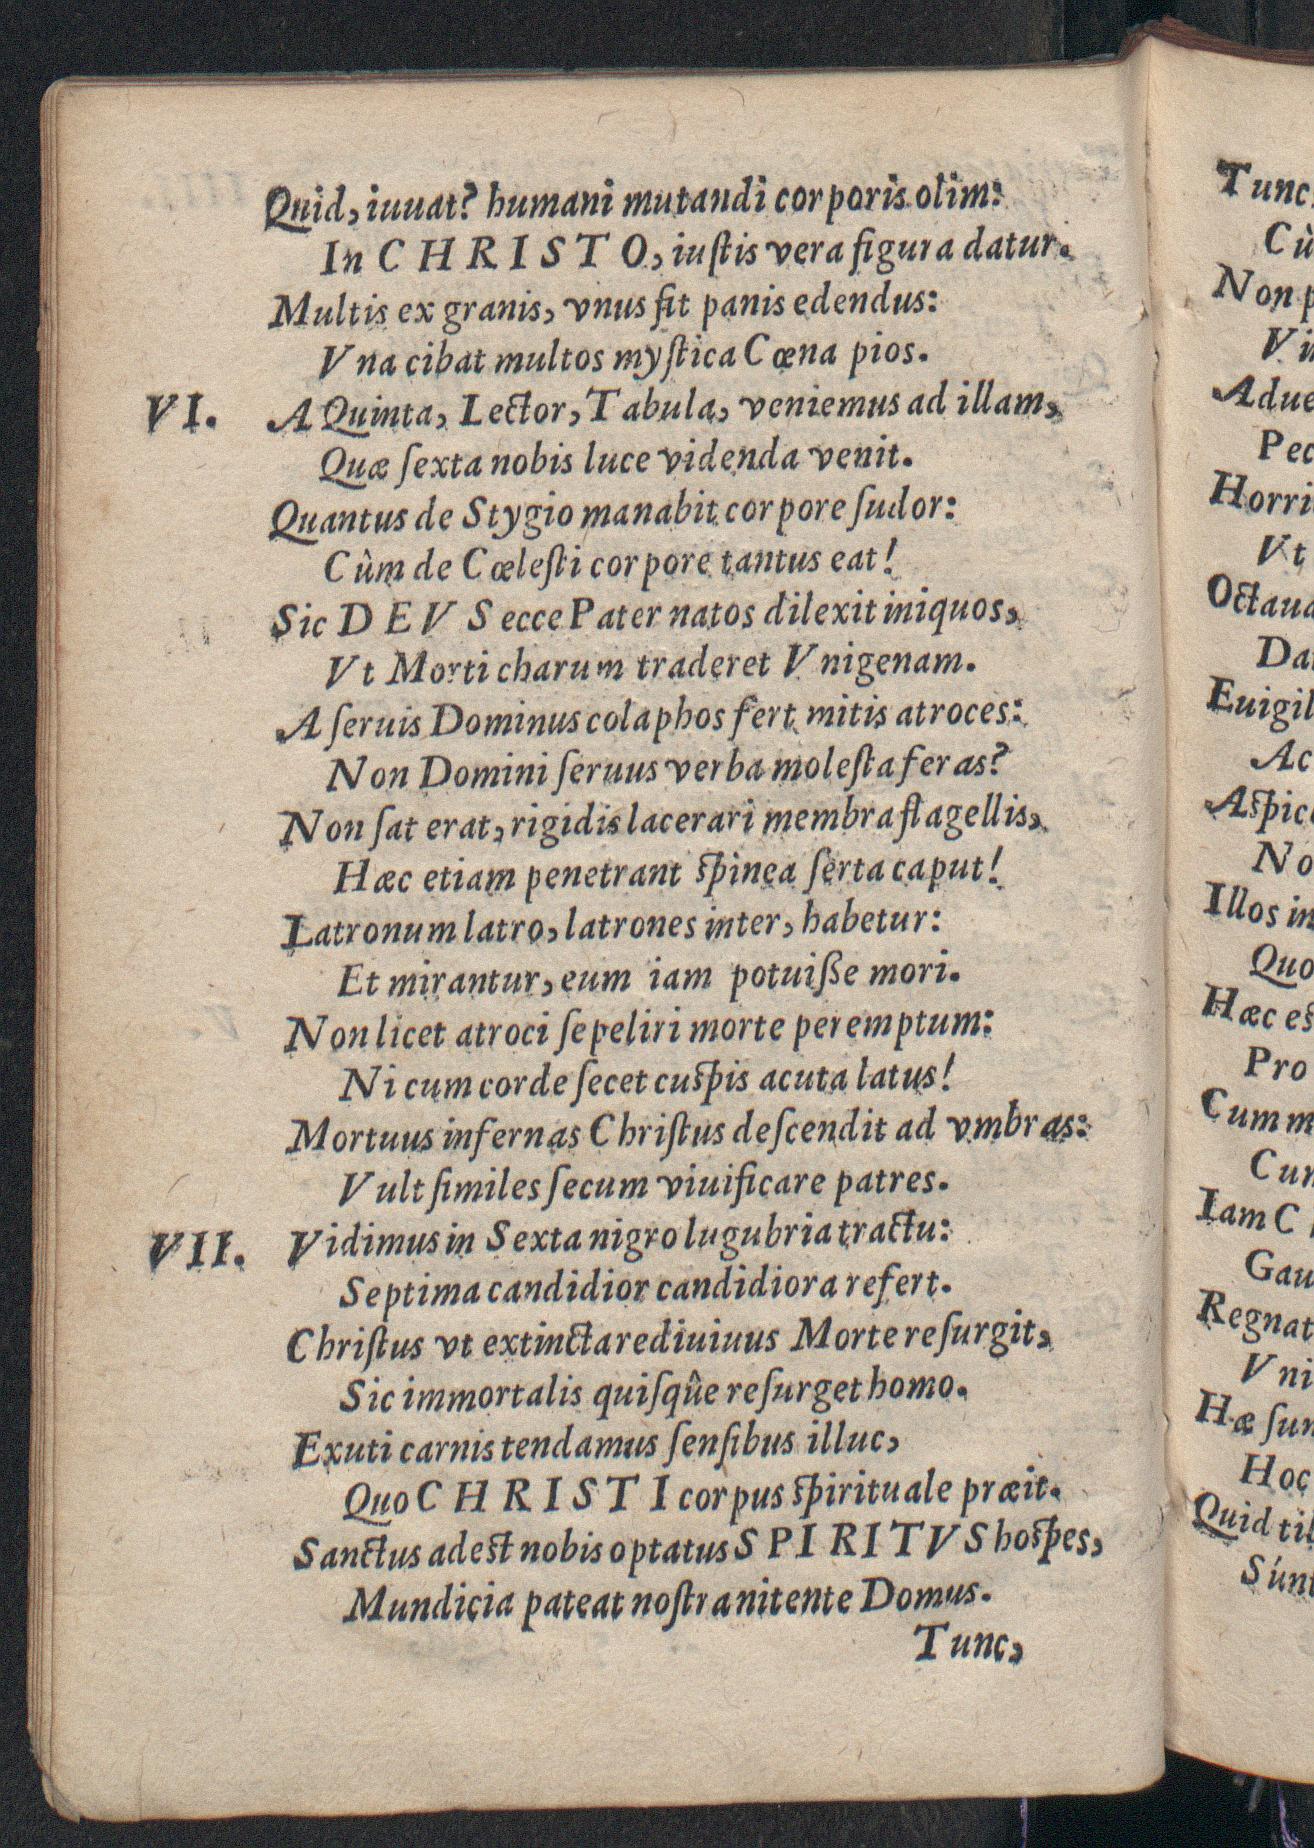 Quid, iuuat? humani mutandi corporis olim:
In CHRISTO, iuſtis vera figura datur.
Multis ex granis, vnus fit panis edendus:
Vna cibat multos myſtica Cœna pios.
VI. A Quinta, Lector, Tabula, veniemus ad illam,
Quæ ſexta nobis luce videnda venit.
Quantus de Stygio manabit corpore ſudor:
Cùm de Cœleſti corpore tantus eat!
Sic DEVS ecce Pater natos dilexit iniquos,
Vt Morti charum traderet Vnigenam.
A ſeruis Dominus colaphos fert mitis atroces:
Non Domini ſeruus verba moleſta feras?
Non ſat erat, rigidis lacerari membra flagellis,
Hæc etiam penetrant ſpinea ſerta caput!
Latronum latro, latrones inter, habetur:
Et mirantur, eum iam potuiße mori.
Non licet atroci ſepeliri morte peremptum:
Ni cum corde ſecet cuſpis acuta latus!
Mortuus infernas Chriſtus deſcendit ad vmbras:
Vult ſimiles ſecum viuificare patres.
VII. Vidimus in Sexta nigro lugubria tractu:
Septima candidior candidiora refert.
Chriſtus vt extincta rediuiuus Morte reſurgit,
Sic immortalis quiſqûe reſurget homo.
Exuti carnis tendamus ſenſibus illuc,
Quo CHRISTI corpus ſpirituale præit.
Sanctus adeſt nobis optatus SPIRITVS hoſpes,
Mundicia pateat noſtra nitente Domus.
Tunc,
Tunc,
Cù
Non p
Vi
Adue
Pec
Horri
Vt
Octaua
Da
Euigil
Ac
Aſpic
No
Illos in
Quo
Hæc eſ
Pro
Cum m
Cun
Iam C
Gau
Regnat
Vni
Hæ ſun
Hoc
Quid ti
Sunt